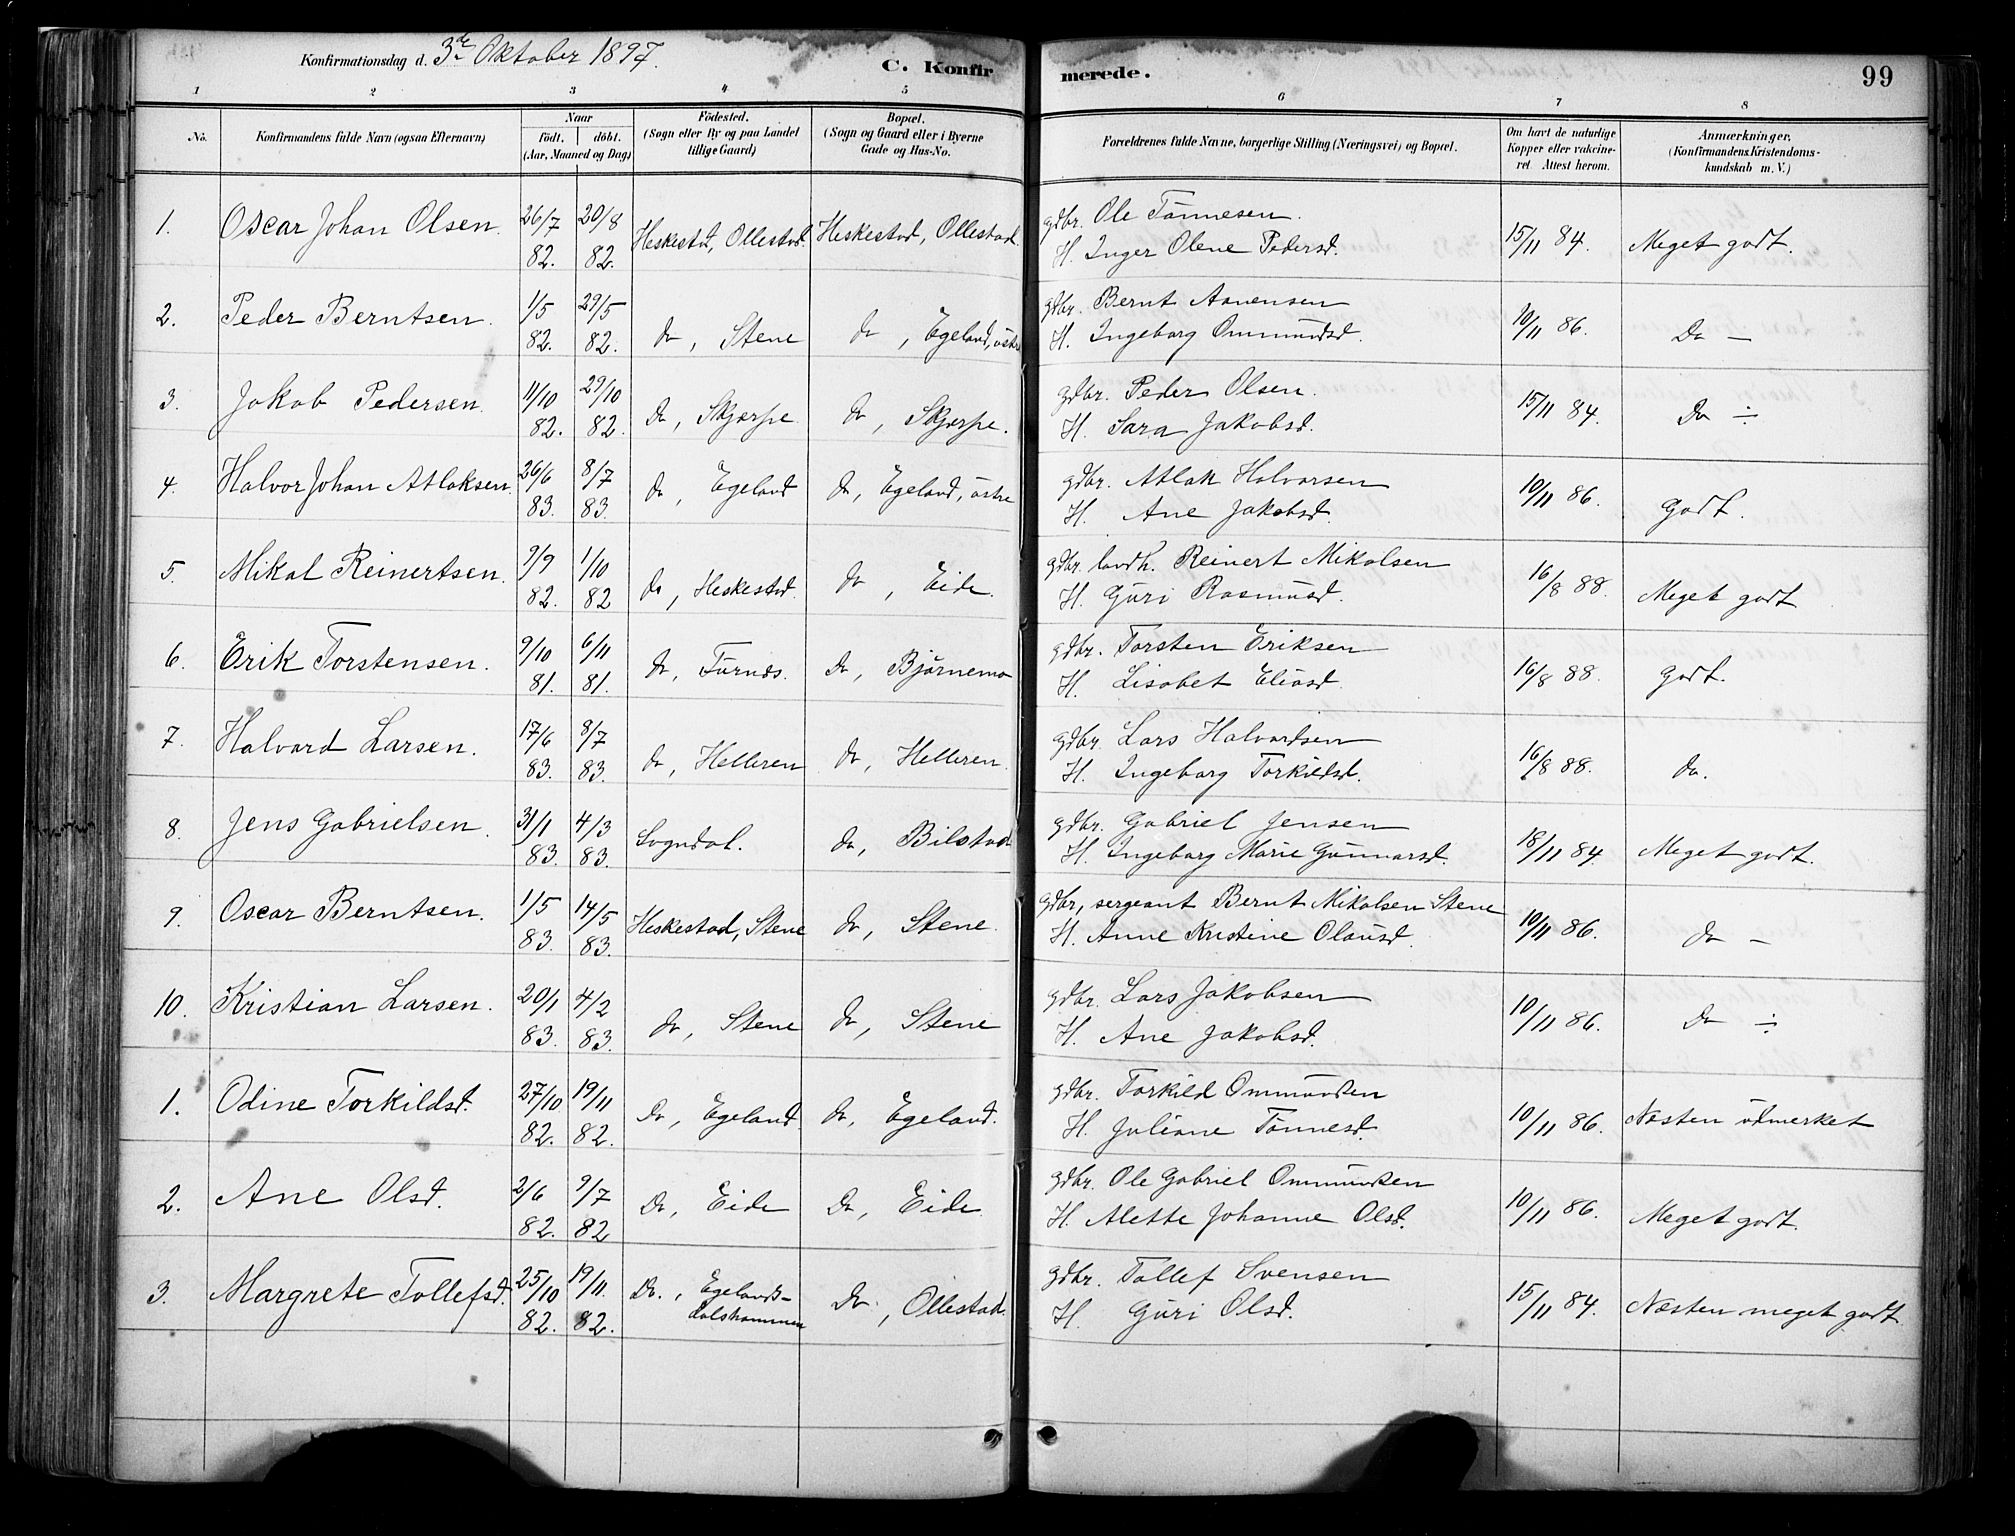 Konfirmationsdag d. 3de Oktober 1897.
C. Konfir merede. 99
1 2 3 4 5 6 7 8
No. Konfirmandens fulde Navn (ogsaa Efternavn) Naar født. døbt. (Aar, Maaned og Dag) Fødested. (Sogn eller By og paa Landet tillige Gaard) Bopæl. (Sogn og Gaard eller i Byerne Gade og Hus-No. Forældrenes fulde Navne, borgerlige Stilling (Næringsvei) og Bopæl. Om havt de naturlige Kopper eller vakcineret Attest herom. Anmærkninger. (Konfirmandens Kristendomskundskab m. V.)
1. Oscar Johan Olsen. 26/7 82. 20/8 82. Heskestad, Ollestad. Heskestad, Ollestad. gdbr. Ole Tönnesen. 15/11 84. Meget godt.
H. Inger Olene Pedersd.
2. Peder Berntsen. 1/5 82. 29/5 82. do, Stene do, Egeland, östre gdbr. Bernt Aanensen 10/11 86. Do —
H. Ingeborg Ommundsd.
3. Jakob Pedersen. 11/10 82. 29/10 82. do, Skjerpe do, Skjerpe. gdbr. Peder Olsen. 15/11 84. Do ÷
H. Sara Jakobsd.
4. Halvor Johan Atlaksen. 26/6 83. 8/7 83. do, Egeland do, Egeland, östre gdbr. Atlak Halvorsen 10/11 86. godt.
H. Ane Jakobsd.
5. Mikal Reinertsen. 9/9 82. 1/10 82 do, Heskestad. do, Eide. gdbr. landh. Reinert Mikalsen 16/8 88. Meget godt
H. Guri Rasmusd.
6. Erik Torstensen. 9/10 81. 6/11 81. do, Furnæs. do, Bjørnemo gdbr. Torsten Eriksen 16/8 88. godt.
H. Lisabet Eliasd.
7. Halvard Larsen. 17/6 83. 8/7 83. do, Helleren do, Helleren. gdbr. Lars Halvardsen 16/8 88. do.
H. Ingeborg Torkildsd.
8. Jens Gabrielsen. 31/1 83. 4/3 83. Sogndal. do, Bilstad gdbr. Gabriel Jensen 18/11 84. Meget godt.
H. Ingeborg Marie Gunnarsd.
9. Oscar Berntsen. 1/5 83. 14/5 83. Heskestad, Stene do, Stene. gdbr, sergeant Bernt Mikalsen Stene 10/11 86. do —
H. Anne Kristine Olausd.
10. Kristian Larsen. 20/1 83. 4/2 83. do, Stene do, Stene gdbr. Lars Jakobsen 10/11 86. Do ÷
H. Ane Jakobsd.
1. Odine Torkildsd. 27/10 82. 19/11 82. do, Egeland. do, Egeland. gdbr. Torkild Ommundsen 10/11 86. Næsten udmerket
H. Juliane Tönnesd.
2. Ane Olsd. 2/6 82. 9/7 82 Do, Eide Do, Eide. gdbr. Ole Gabriel Ommundsen 10/11 86. Meget godt.
H. Alette Johanne Olsd.
3. Margrete Tollefsd. 25/10 82. 19/11. 82. Do., Egelands- Do, Ollestad. gdbr. Tollef Svensen 15/11 84. Næsten meget godt
H. Guri Olsd.